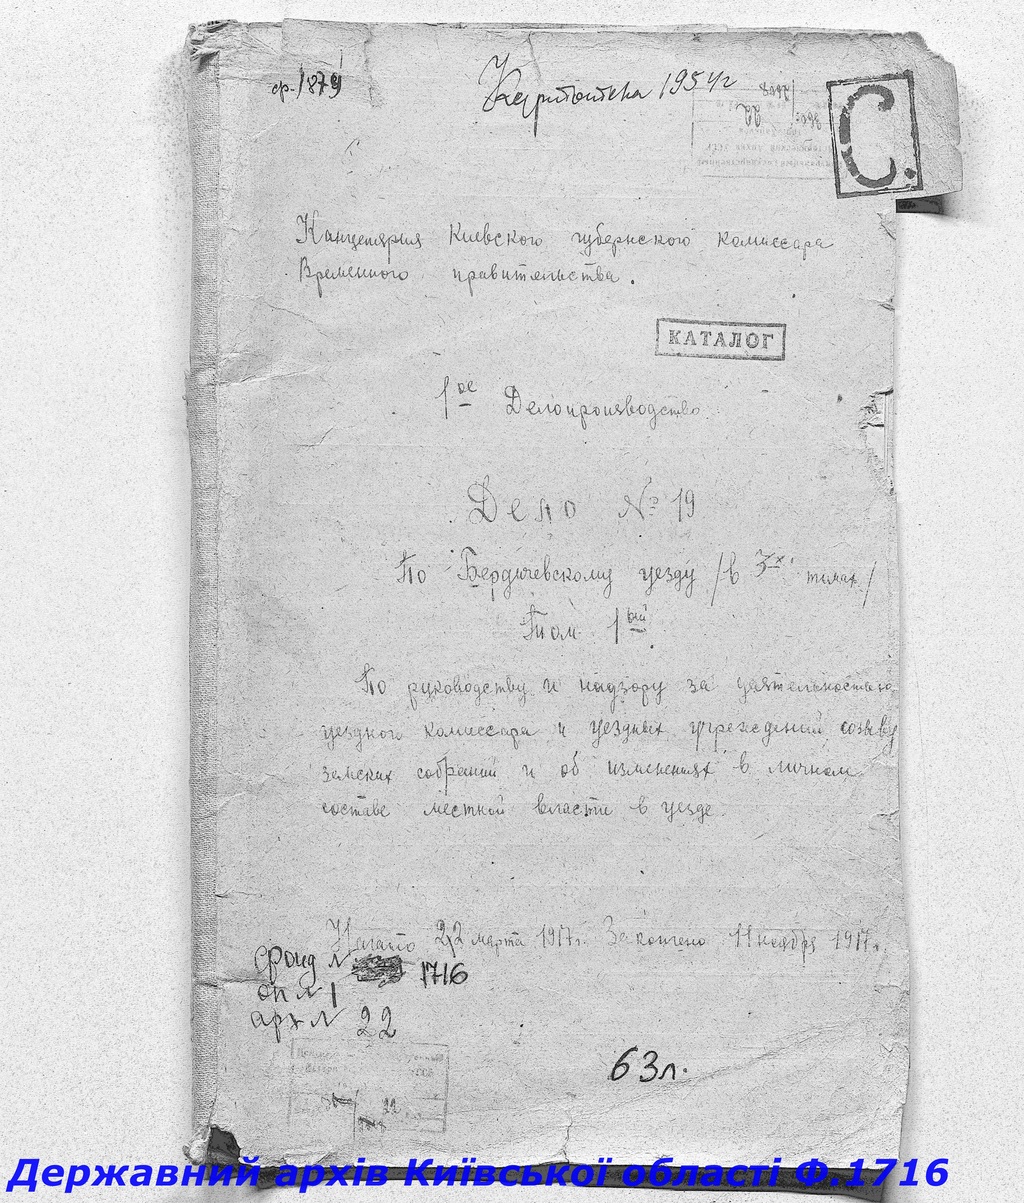 ф. 1879
Картотека 1954 г
С.
Канцелярия Киевского губернского комиссара
Временного правительства.
КАТАЛОГ
1ое Делопроизводство
Дело № 19
По Бердичевскому уезду /в 3х томах/
Том 1ый
По руководству и надзору за деятельностью
уездного комиссара и уездных учреждений созыву
земских собраний и об изменениях в личном
составе местной власти в уезде.
Начато 22 марта 1917 г. Закончено 11 ноября 1917 г.
фонд № 1716
оп № 1
арх № 22
22
63 л.
Державний архів Київської області Ф.1716